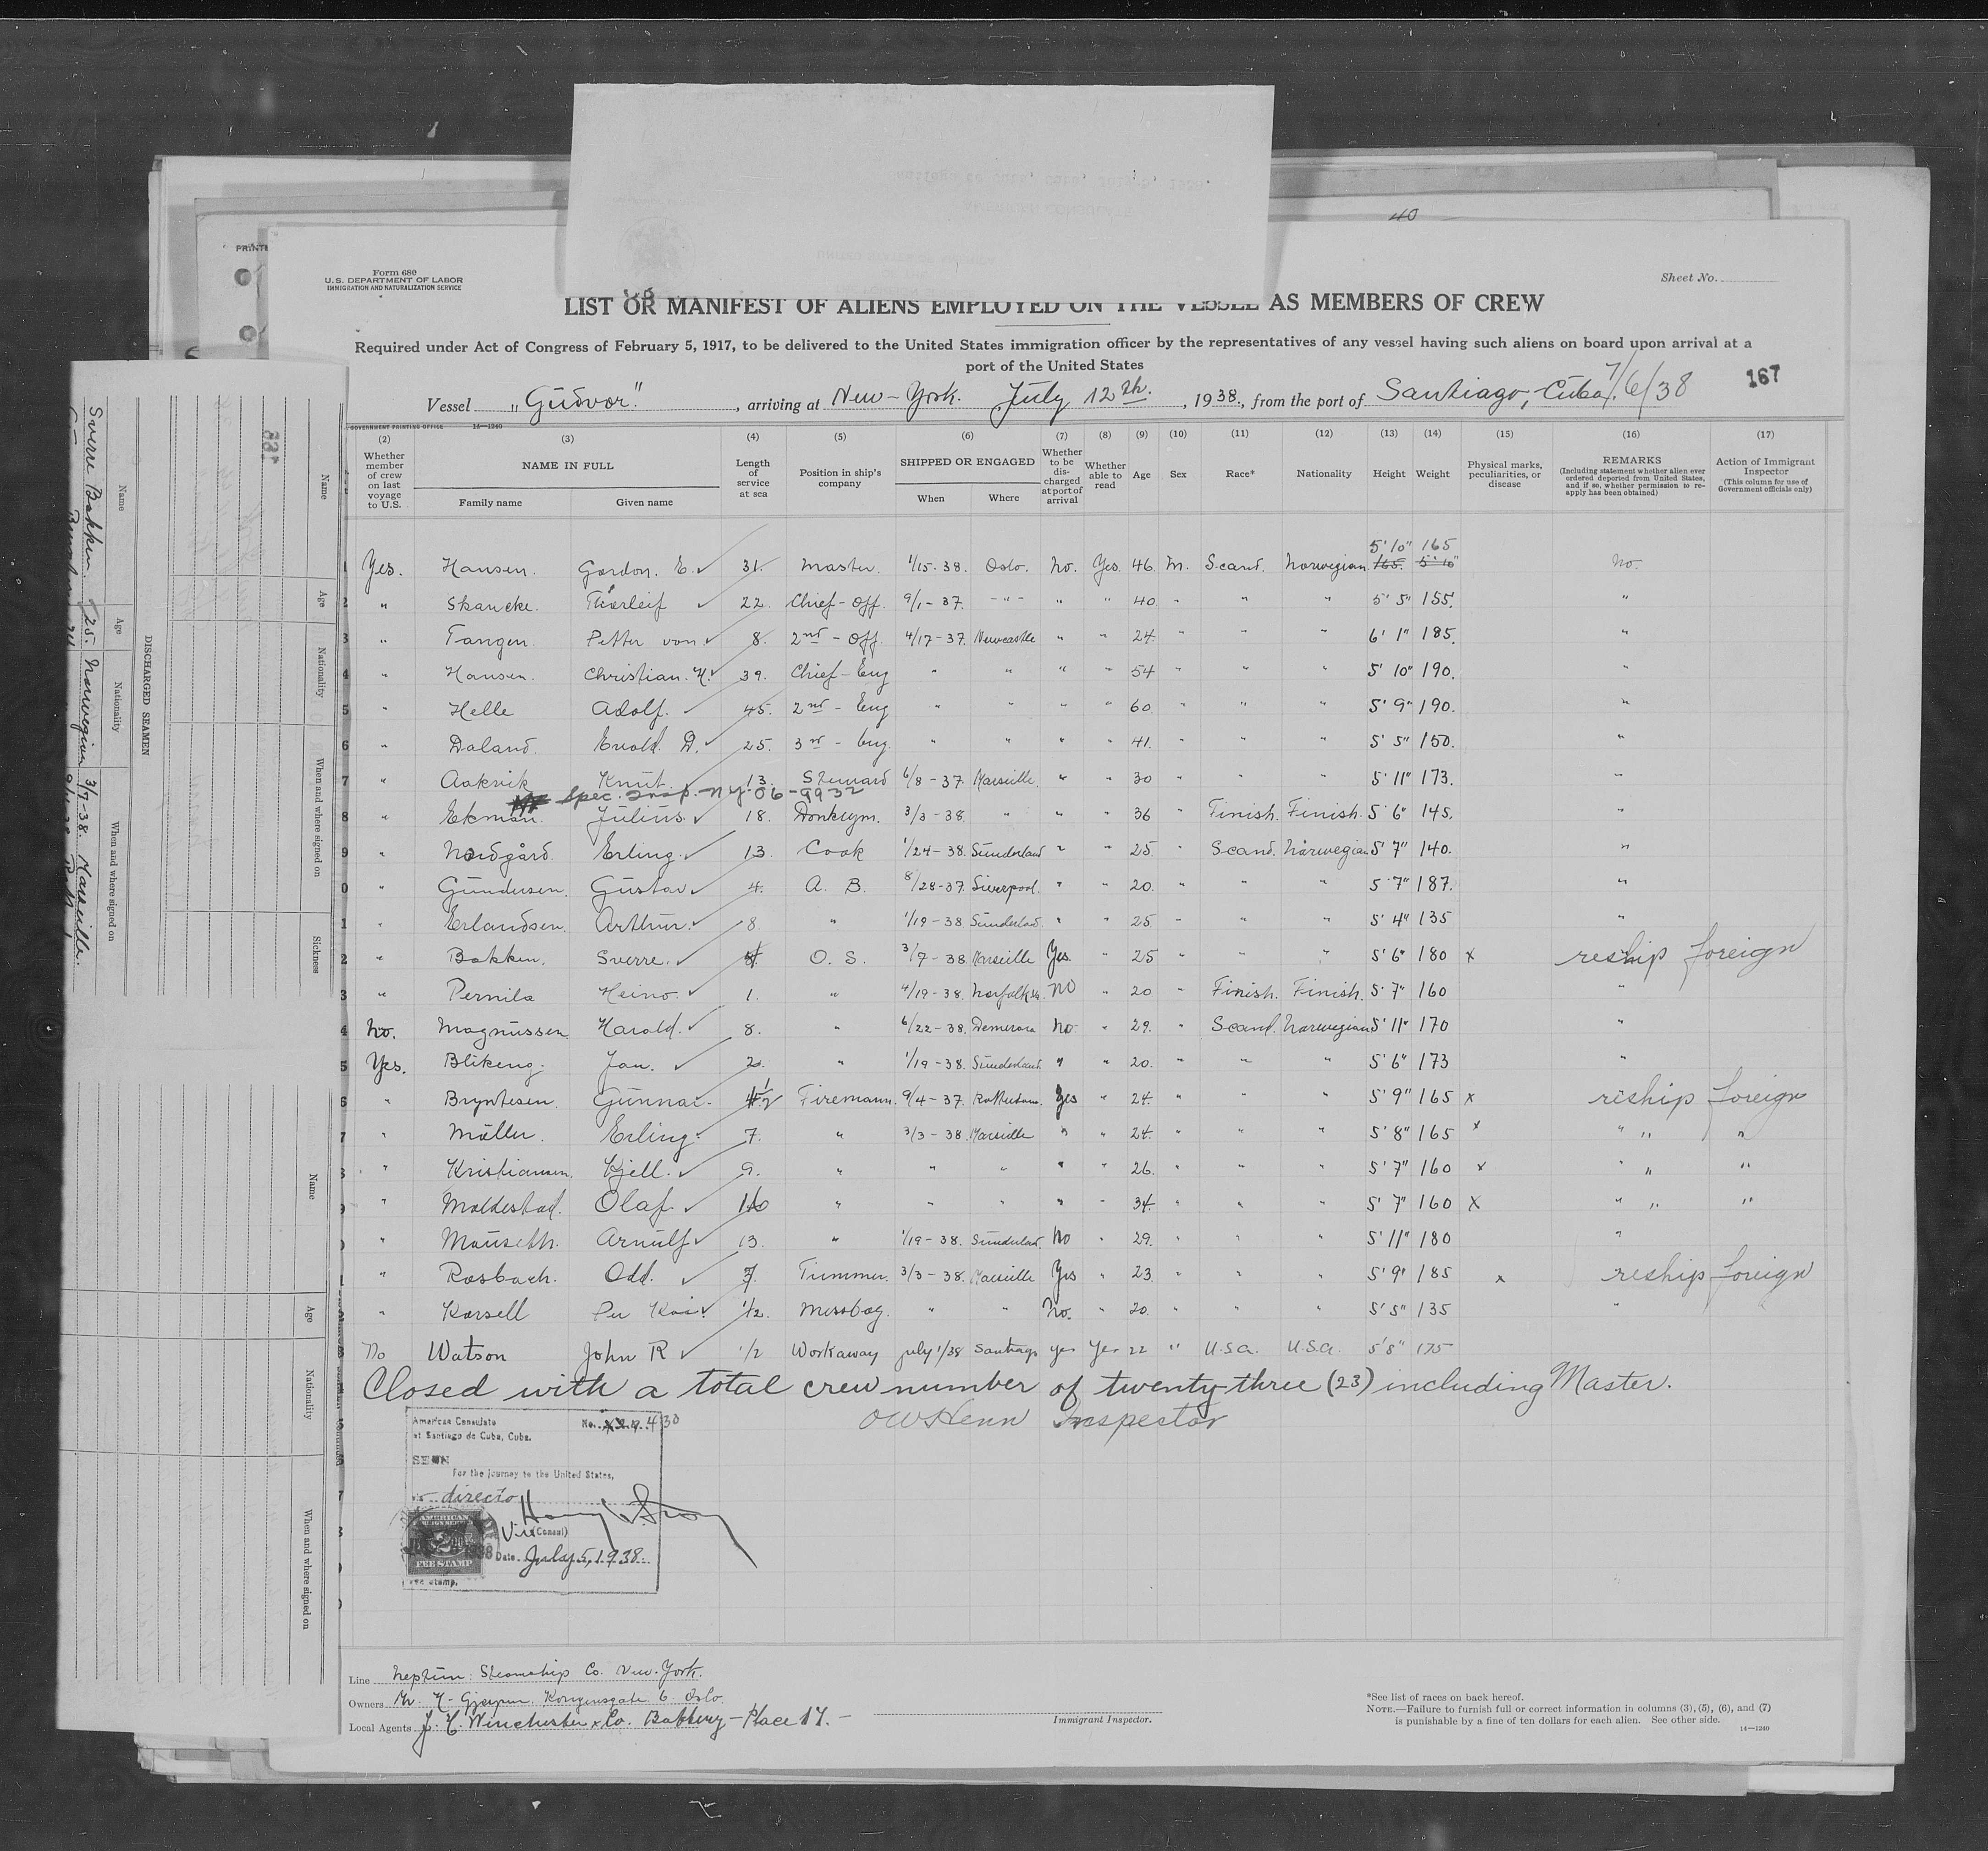 40
PRINTE
Form 680
U.S. DEPARTMENT OF LABOR
IMMIGRATION AND NATURALIZATION SERVICE
Sheet No.
LIST OR MANIFEST OF ALIENS EMPLOYED ON THE VESSEL AS MEMBERS OF CREW
Required under Act of Congress of February 5, 1917, to be delivered to the United States immigration officer by the representatives of any vessel having such aliens on board upon arrival at a
port of the United States
167
Vessel „Gudvor.", arriving at New-York. July 12th., 1938., from the port of Santiago, Cuba. 7/6/38
GOVERNMENT PRINTING OFFICE 14—1240
(2) (3) (4) (5) (6) (7) (8) (9) (10) (11) (12) (13) (14) (15) (16) (17)
Whether member of crew on last voyage to U.S.
NAME IN FULL
Family name
Given name
Length of service at sea
Position in ship's company
SHIPPED OR ENGAGED
When
Where
Whether to be discharged at port of arrival
Whether able to read
Age
Sex
Race*
Nationality
Height
Weight
Physical marks, peculiarities, or disease
REMARKS
(Including statement whether alien ever ordered deported from United States, and if so, whether permission to reapply has been obtained)
Action of Immigrant Inspector
(This column for use of Government officials only)
5'10" 165
1 Yes. Hansen. Gordon. E. ✓ 31. Master. 1/15-38. Oslo. No. Yes. 46. M. Scand. Norwegian 165. 5'10" No.
2 " Skancke. ✓ 22. Chief-Off. 9/1-37. -"- " " 40 " " " 5'5" 155. "
3 " Tangen. Petter von ✓ 8. 2nd-Off. 4/17-37. Newcastle " " 24. " " " 6'1" 185. "
4 " Hansen. Christian. H. ✓ 39. Chief-Eng " " " " 54 " " " 5'10" 190. "
5 " Helle Adolf. ✓ 45. 2nd-Eng " " " " 60. " " " 5'9" 190. "
6 " Daland. D. ✓ 25. 3rd-Eng. " " " " 41. " " " 5'5" 150. "
7 " Aakvik Knut. 13. Steward 6/8-37. Marseille. " " 30 " " " 5'11" 173. "
Spec. Insp. N.Y. 06-9932
8 " Ekman. Julius. ✓ 18. Donkeym. 3/3-38. " " " 36 " Finish. Finish. 5'6" 145. "
9 " Nordgård. Erling. ✓ 13. Cook 1/24-38. Sunderland " " 25. " Scand. Norwegian 5'7" 140. "
0 " Gundersen. Gustav ✓ 4. A. B. 8/28-37. Liverpool. " " 20. " " " 5'7" 187. "
1 " Erlandsen. Arthur. ✓ 8. " 1/19-38 Sunderland " " 25. " " " 5'4" 135 "
2 " Bakken. Sverre. ✓ O. S. 3/7-38. Marseille Yes. " 25 " " " 5'6" 180 x reship foreign
3 " Pernila Heino. ✓ 1. " 4/19-38. Norfolk No " 20 " Finish. Finish. 5'7" 160 "
4 No. Magnussen Harold. ✓ 8. " 6/22-38. Demerara No " 29. " Scand. Norwegian 5'11" 170 "
5 Yes. Blikeng. Jan. ✓ 2. " 1/19-38. Sunderland. " " 20. " " " 5'6" 173 "
6 " Bryntesen. Gunnar. Firemann. 9/4-37. Rotterdam. Yes " 24. " " " 5'9" 165 x reship foreign
7 " Möller. Erling. 7. " 3/3-38. Marseille " " 24. " " " 5'8" 165 x " " "
8 " Kristiansen. Kjell. ✓ 9. " " " " " 26. " " " 5'7" 160 x " " "
9 " Moldestad. Olaf. ✓ 16 " " " " " 34. " " " 5'7" 160 x " " "
0 " Mauseth. Arnulf ✓ 13. " 1/19-38. Sunderland. No " 29. " " " 5'11" 180 "
1 " Rosbach. Odd. ✓ 7. Trimmer. 3/3-38. Marseille Yes " 23. " " " 5'9" 185 x reship foreign
2 " Korsell Per Kai. ✓ 1/2. Messboy. " " No. " 20. " " " 5'5" 135 "
3 No Watson John R ✓ 1/2 Workaway July 1/38 Santiago yes Yes 22 " U.S.a. U.S.a. 5'8" 175
Closed with a total crew number of twenty three (23) including Master.
OW Henn Inspector
American Consulate No. 430
at Santiago de Cuba, Cuba.
SEEN
For the journey to the United States,
via directo
Vice (Consul)
AMERICAN
2
FEE STAMP
Date July 5, 1938.
Fee stamp.
Line Neptun Steamship Co. New-York.
Owners Kongensgate 6 Oslo.
Local Agents J. H. Winchester & Co. Battery-Place 17.-
Immigrant Inspector.
*See list of races on back hereof.
NOTE.—Failure to furnish full or correct information in columns (3), (5), (6), and (7)
is punishable by a fine of ten dollars for each alien. See other side.
14—1240
DISCHARGED SEAMEN
Name
Age
Nationality
When and where signed on
Sickness
Sverre Bakken. 25. Norwegian 3/7-38. Marseille.
Name
Age
Nationality
When and where signed on
Name
Age
Nationality
When and where signed on